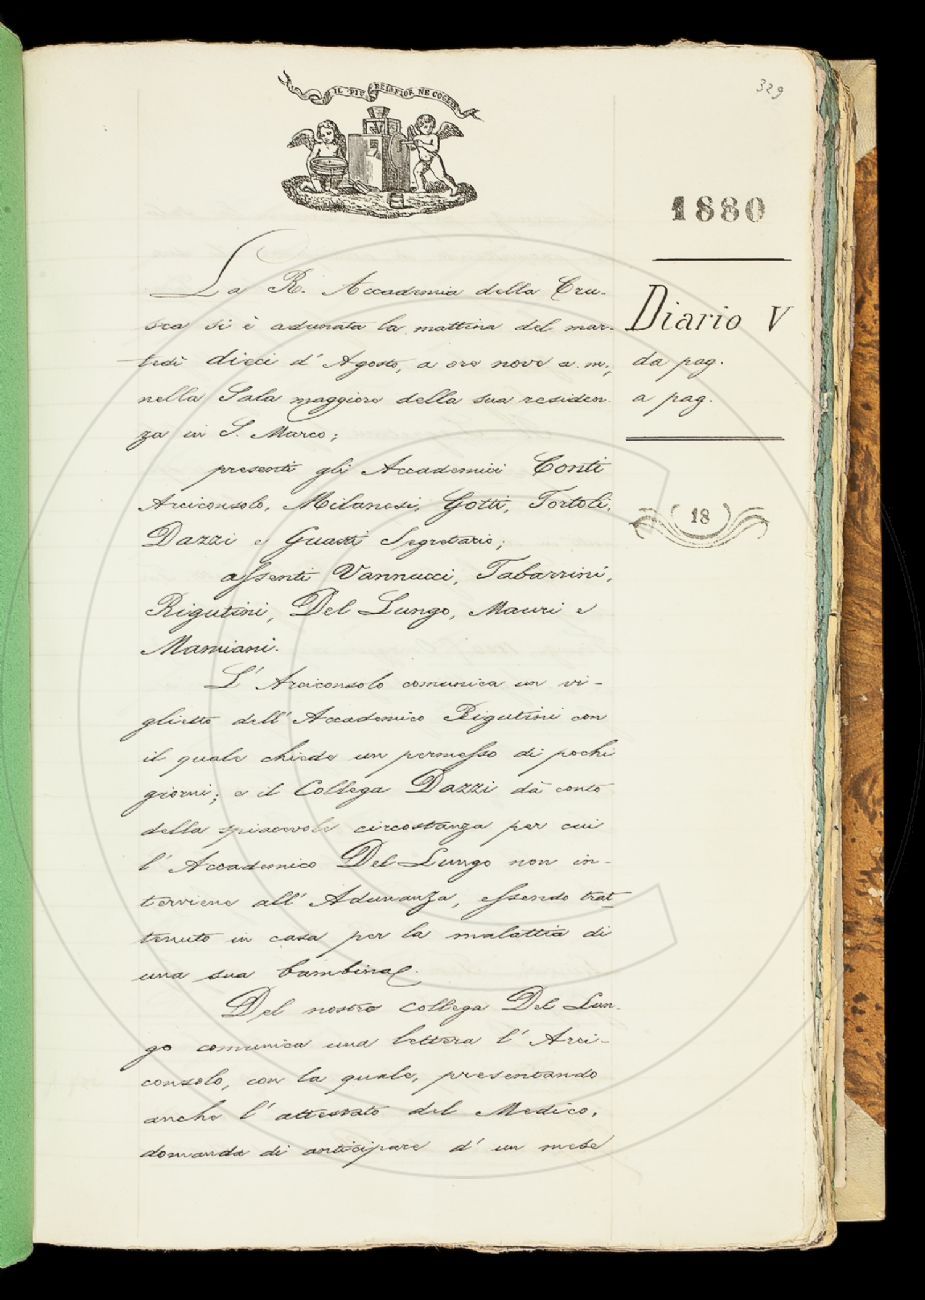 IL PIÙ BEL FIOR NE COGLIE
329
1880
Diario V
da pag.
a pag.
18
La R. Accademia della Cru-
sca si è adunata la mattina del mar-
tedì dieci d'Agosto, a ore nove a.m.,
nella Sala maggiore della sua residen
za in S. Marco;
presenti gli Accademici Conti
Arciconsolo, Milanesi, Gotti, Tortoli,
Dazzi e Guasti Segretario;
assenti Vannucci, Tabarrini,
Rigutini, Del Lungo, Mauri e
Mamiani.
L'Arciconsolo comunica un vi-
glietto dell'Accademico Rigutini con
il quale chiede un permesso di pochi
giorni; e il Collega Dazzi dà conto
della spiacevole circostanza per cui
l'Accademico Del-Lungo non in-
terviene all'Adunanza, essendo trat-
tenuto in casa per la malattia di
una sua bambina.
Del nostro collega Del Lun-
go comunica una lettera l'Arci-
consolo, con la quale, presentando
anche l'attestato del Medico,
domanda di anticipare d'un mese